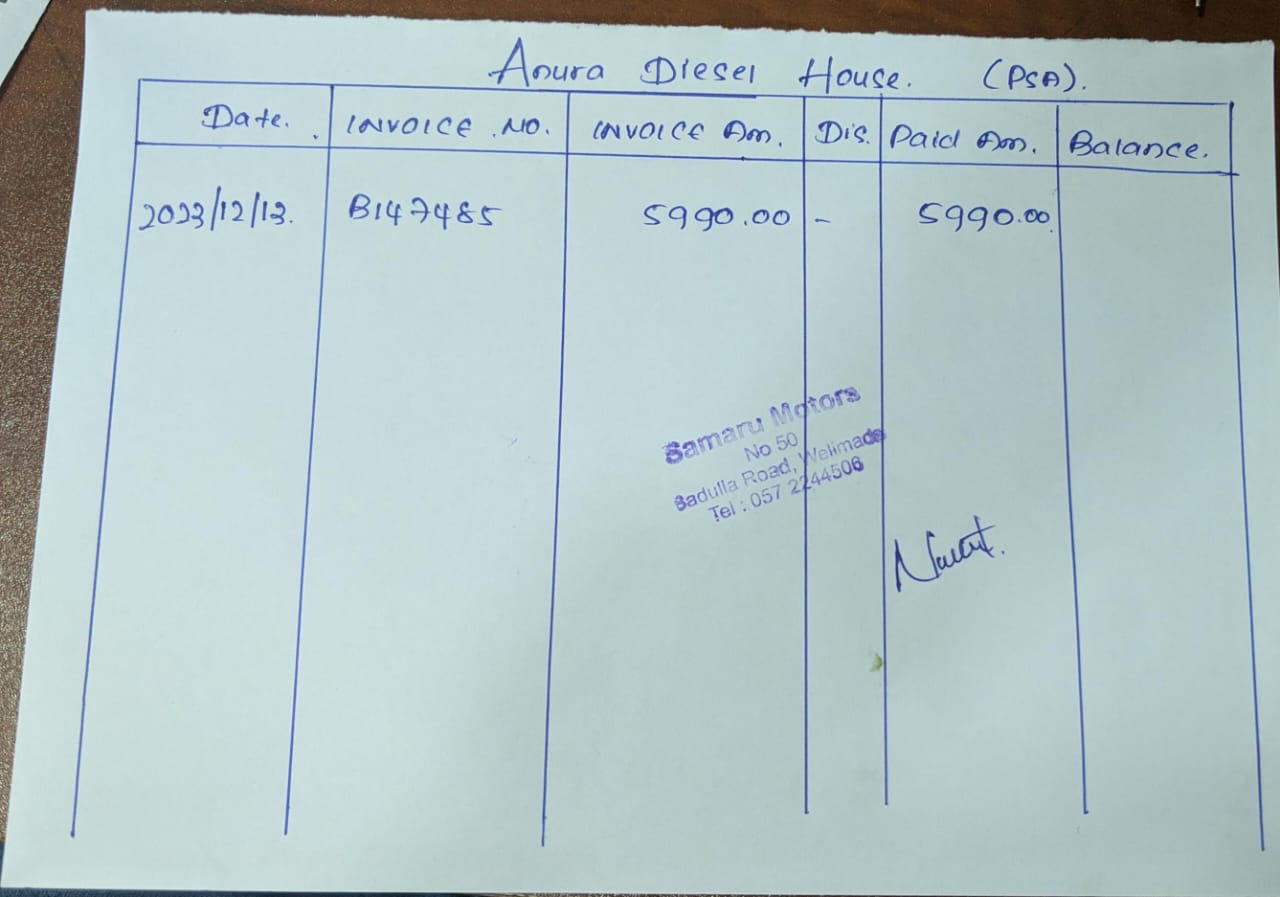 Anura Diesel House. (PSA).
Date. INVOICE NO. INVOICE Am. Dis. Paid Am. Balance.
2023/12/13. B147485 5990.00 - 5990.00
Samaru Motors
No 50
Badulla Road, Welimada
Tel : 057 2244506